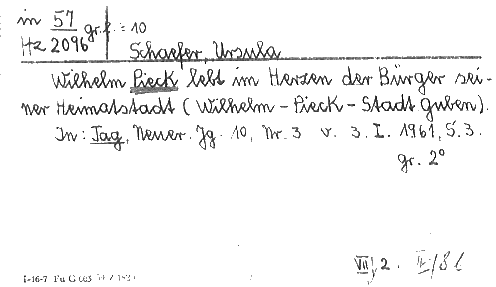 in 57 gr. 2° = 10
Hz 2096
Schaefer, Ursula
Wilhelm Pieck lebt im Herzen der Bürger sei-
ner Heimatstadt (Wilhelm-Pieck-Stadt Guben).
In: Tag, Neuer. Jg. 10, Nr. 3 v. 3. I. 1961, S. 3.
gr. 2°
VII/2. II/81
I-16-7 Fu G